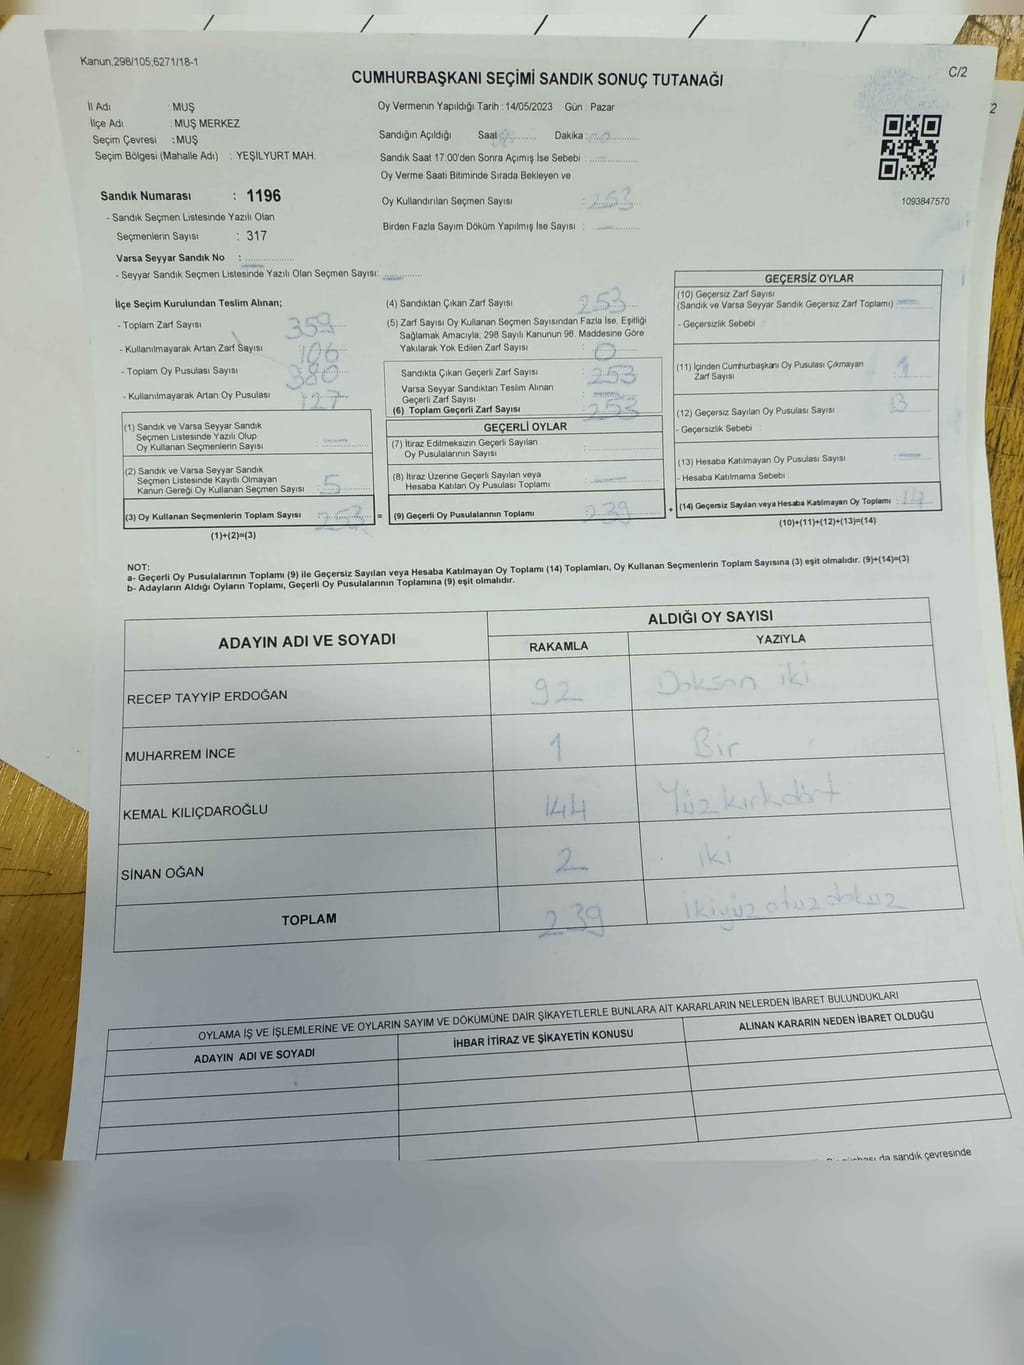 Kanun;298/105;6271/18-1
C/2
CUMHURBAŞKANI SEÇİMİ SANDIK SONUÇ TUTANAĞI
İl Adı : MUŞ
İlçe Adı : MUŞ MERKEZ
Seçim Çevresi : MUŞ
Seçim Bölgesi (Mahalle Adı) : YEŞİLYURT MAH.
Sandık Numarası : 1196
- Sandık Seçmen Listesinde Yazılı Olan
Seçmenlerin Sayısı : 317
Varsa Seyyar Sandık No :
- Seyyar Sandık Seçmen Listesinde Yazılı Olan Seçmen Sayısı:
Oy Vermenin Yapıldığı Tarih : 14/05/2023 Gün : Pazar
Sandığın Açıldığı Saat Dakika :
Sandık Saat 17:00'den Sonra Açımış İse Sebebi :
Oy Verme Saati Bitiminde Sırada Bekleyen ve
Oy Kullandırılan Seçmen Sayısı : 253
Birden Fazla Sayım Döküm Yapılmış İse Sayısı :
1093847570
2
İlçe Seçim Kurulundan Teslim Alınan;
- Toplam Zarf Sayısı 359
- Kullanılmayarak Artan Zarf Sayısı 106
- Toplam Oy Pusulası Sayısı 380
- Kullanılmayarak Artan Oy Pusulası 127
(1) Sandık ve Varsa Seyyar Sandık
Seçmen Listesinde Yazılı Olup
Oy Kullanan Seçmenlerin Sayısı :
(2) Sandık ve Varsa Seyyar Sandık
Seçmen Listesinde Kayıtlı Olmayan
Kanun Gereği Oy Kullanan Seçmen Sayısı : 5
(3) Oy Kullanan Seçmenlerin Toplam Sayısı : 253 =
(1)+(2)=(3)
(4) Sandıktan Çıkan Zarf Sayısı : 253
(5) Zarf Sayısı Oy Kullanan Seçmen Sayısından Fazla İse, Eşitliği
Sağlamak Amacıyla, 298 Sayılı Kanunun 98. Maddesine Göre
Yakılarak Yok Edilen Zarf Sayısı : 0
Sandıkta Çıkan Geçerli Zarf Sayısı : 253
Varsa Seyyar Sandıktan Teslim Alınan
Geçerli Zarf Sayısı :
(6) Toplam Geçerli Zarf Sayısı : 253
GEÇERLİ OYLAR
(7) İtiraz Edilmeksizin Geçerli Sayılan
Oy Pusulalarının Sayısı :
(8) İtiraz Üzerine Geçerli Sayılan veya
Hesaba Katılan Oy Pusulası Toplamı :
(9) Geçerli Oy Pusulalarının Toplamı : 239 +
GEÇERSİZ OYLAR
(10) Geçersiz Zarf Sayısı
(Sandık ve Varsa Seyyar Sandık Geçersiz Zarf Toplamı) :
- Geçersizlik Sebebi :
(11) İçinden Cumhurbaşkanı Oy Pusulası Çıkmayan
Zarf Sayısı : 1
(12) Geçersiz Sayılan Oy Pusulası Sayısı : 13
- Geçersizlik Sebebi :
(13) Hesaba Katılmayan Oy Pusulası Sayısı :
- Hesaba Katılmama Sebebi :
(14) Geçersiz Sayılan veya Hesaba Katılmayan Oy Toplamı : 14
(10)+(11)+(12)+(13)=(14)
NOT:
a- Geçerli Oy Pusulalarının Toplamı (9) ile Geçersiz Sayılan veya Hesaba Katılmayan Oy Toplamı (14) Toplamları, Oy Kullanan Seçmenlerin Toplam Sayısına (3) eşit olmalıdır. (9)+(14)=(3)
b- Adayların Aldığı Oyların Toplamı, Geçerli Oy Pusulalarının Toplamına (9) eşit olmalıdır.
ADAYIN ADI VE SOYADI ALDIĞI OY SAYISI
RAKAMLA YAZIYLA
RECEP TAYYİP ERDOĞAN 92 Doksan iki
MUHARREM İNCE 1 Bir
KEMAL KILIÇDAROĞLU 144 Yüzkırkdört
SİNAN OĞAN 2 iki
TOPLAM 239 ikiyüzotuzdokuz
OYLAMA İŞ VE İŞLEMLERİNE VE OYLARIN SAYIM VE DÖKÜMÜNE DAİR ŞİKAYETLERLE BUNLARA AİT KARARLARIN NELERDEN İBARET BULUNDUKLARI
ADAYIN ADI VE SOYADI İHBAR İTİRAZ VE ŞİKAYETİN KONUSU ALINAN KARARIN NEDEN İBARET OLDUĞU
da sandık çevresinde